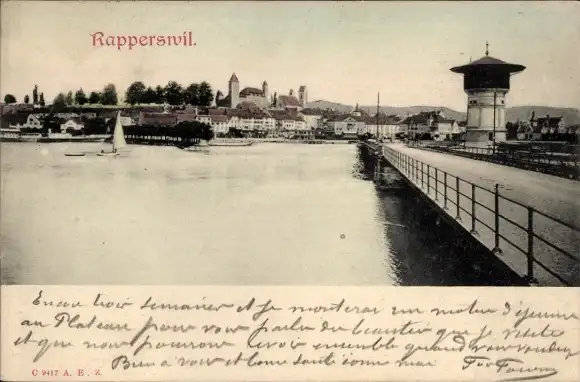 Rapperswil.
Encore trois semaines et je monterai un matin d'jeune
au Plateau pour vous parler des beautés que je visite
et que nous pourrons revoir ensemble quand vous voudrez
Bien à vous et bonne santé comme moi
C 9417 A. E. Z.